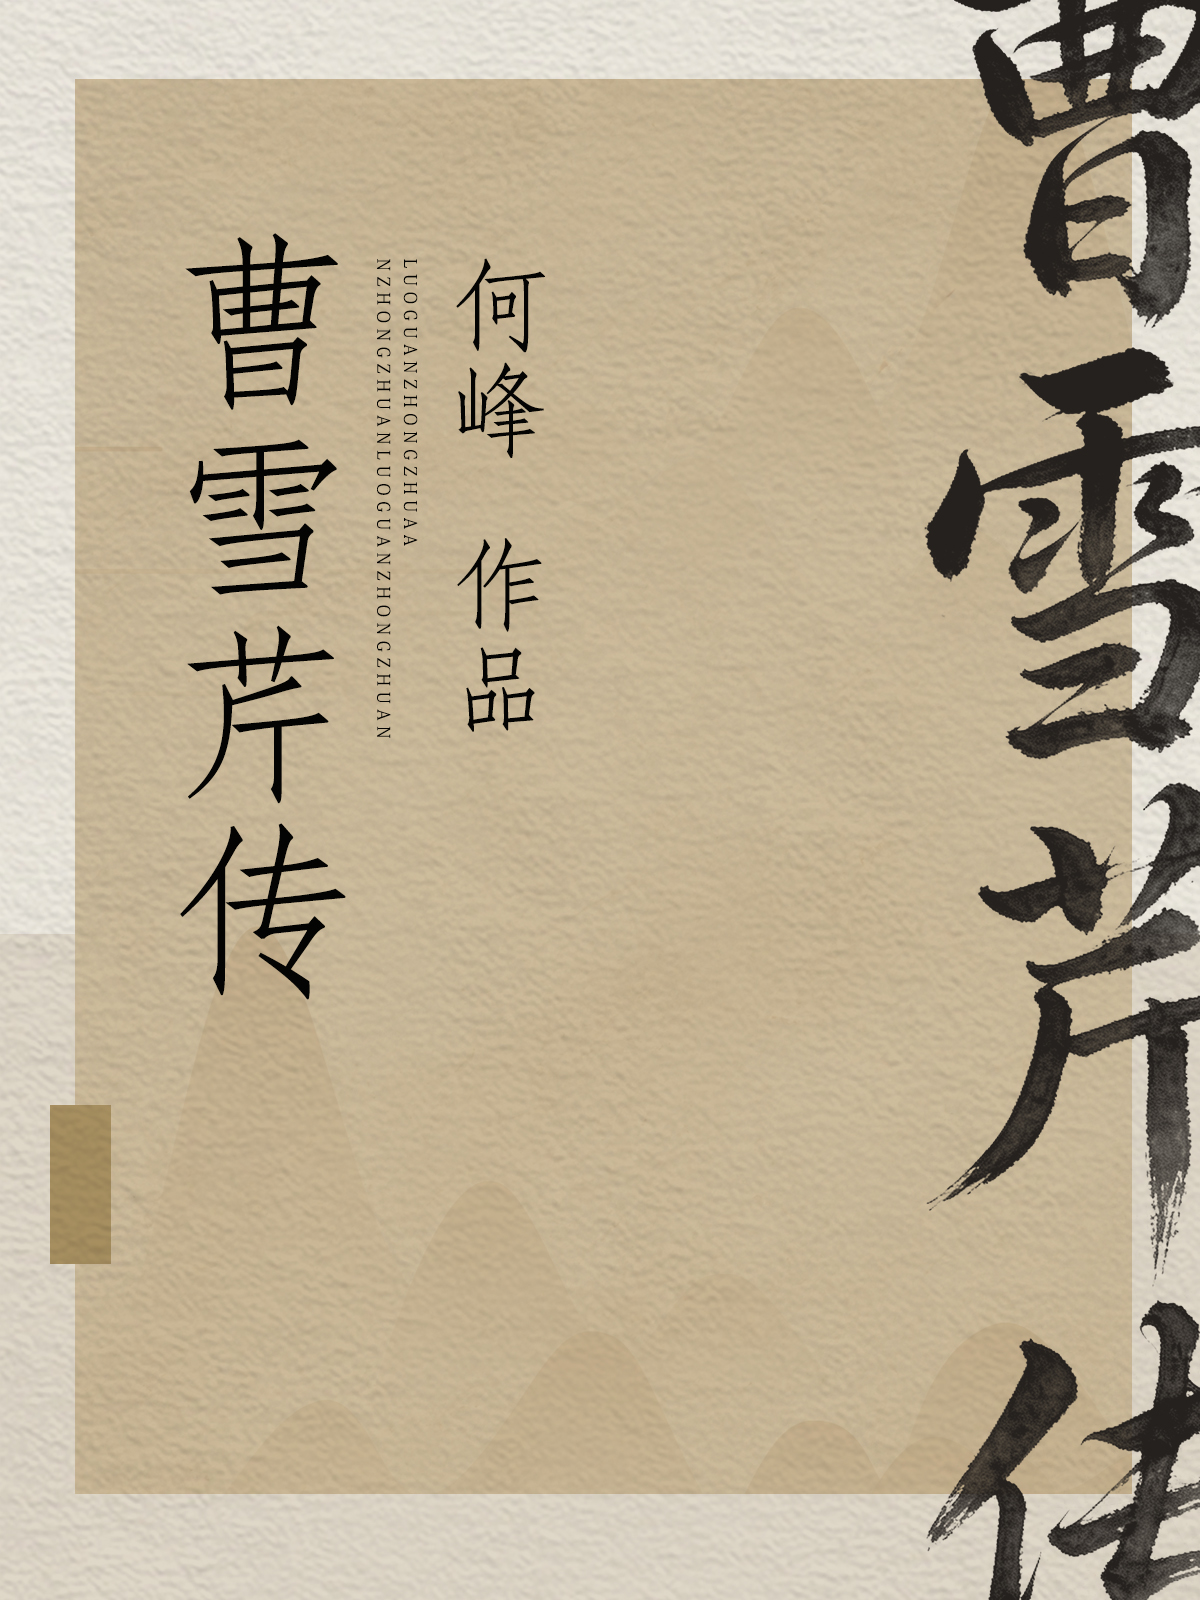 曹雪芹传
曹雪芹传
LUOGUANZHONGZHUAA
NZHONGZHUANLUOGUANZHONGZHUAN
何峰 作品